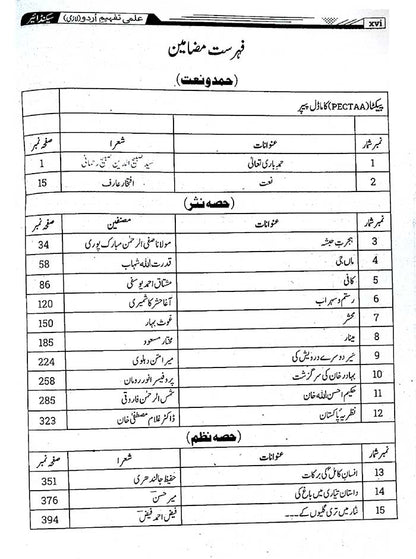 xvi علمی تفہیم اُردو (لازمی) سیکنڈ ائیر
فہرست مضامین
(حمد و نعت)
پیکٹا (PECTAA) کا ماڈل پیپر
نمبر شمار عنوانات شعرا صفحہ نمبر
1 حمد باری تعالیٰ سید صبیح الدین صبیح رحمانی 1
2 نعت افتخار عارف 15
(حصہ نثر)
نمبر شمار عنوانات مصنفین صفحہ نمبر
3 ہجرتِ حبشہ مولانا صفی الرحمٰن مبارک پوری 34
4 ماں جی قدرت اللہ شہاب 58
5 کافی مشتاق احمد یوسفی 86
6 رستم و سہراب آغا حشر کاشمیری 120
7 محشر غوث بہار 150
8 مینار مختار مسعود 185
9 سیر دوسرے درویش کی میر امن دہلوی 224
10 بہادر خان کی سرگزشت پروفیسر انور رومان 258
11 حکیم احسن اللہ خان شمس الرحمٰن فاروقی 285
12 نظریہ پاکستان ڈاکٹر غلام مصطفیٰ خان 323
(حصہ نظم)
نمبر شمار عنوانات شعرا صفحہ نمبر
13 انسانِ کامل کی برکات حفیظ جالندھری 351
14 داستان تیاری میں باغ کی میر حسن 376
15 نثار میں تری گلیوں کے۔۔۔ فیض احمد فیض 394